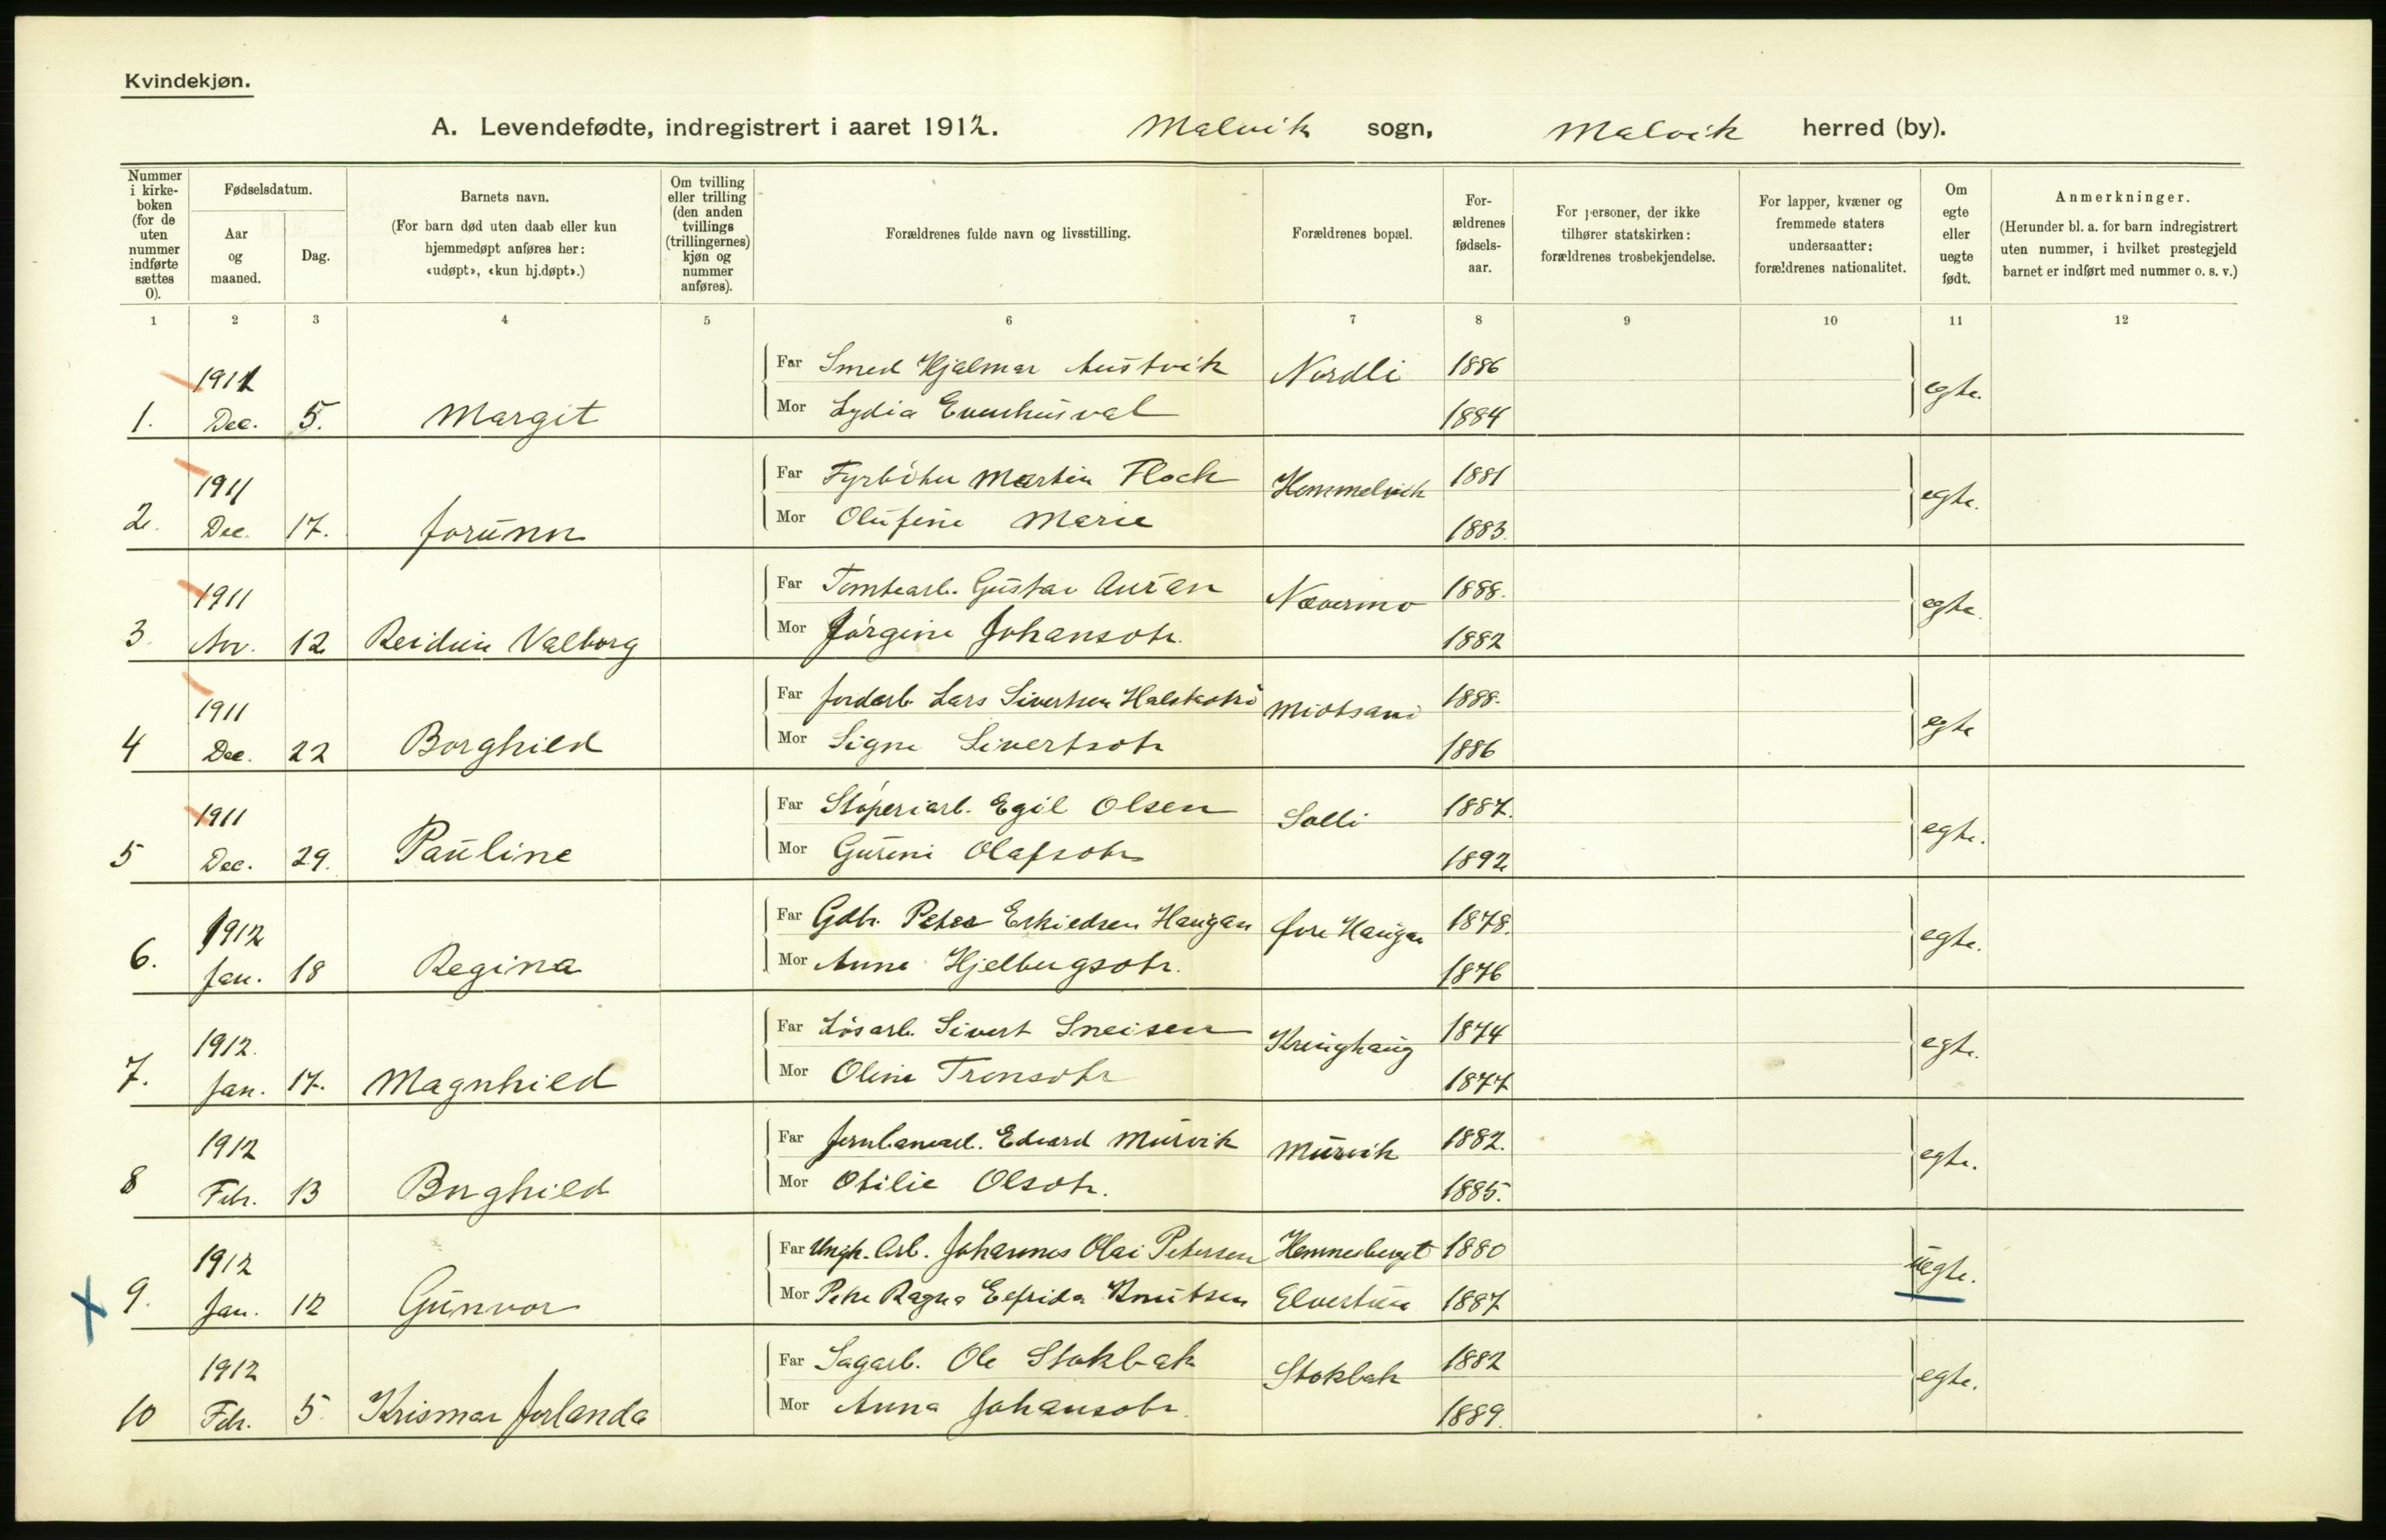 Kvindekjøn.
A. Levendefødte, indregistrert i aaret 1912. Malvik sogn, Malvik herred (by).
Nummer i kirke-boken (for de uten nummer indførte sættes 0).
Fødselsdatum.
Aar og maaned.
Dag.
Barnets navn.
(For barn død uten daab eller kun hjemmedøpt anføres her: «udøpt», «kun hj.døpt».)
Om tvilling eller trilling (den anden tvillings (trillingernes) kjøn og nummer anføres).
Forældrenes fulde navn og livsstilling.
Forældrenes bopæl.
For-ældrenes fødsels-aar.
For personer, der ikke tilhører statskirken: forældrenes trosbekjendelse.
For lapper, kvæner og fremmede staters undersaatter: forældrenes nationalitet.
Om egte eller uegte født.
Anmerkninger.
(Herunder bl. a. for barn indregistrert uten nummer, i hvilket prestegjeld barnet er indført med nummer o. s. v.)
1 2 3 4 5 6 7 8 9 10 11 12
1911 Far Smed Hjalmar Austvik Nordli 1886
1. Dec. 5. Margit Mor Lydia 1884 egte.
1911 Far Fyrbøter Martin Flack Hommelvik 1881
2. Dec. 17. Jorunn Mor Olufine Marie 1883. egte.
1911 Far Tomtearb. Gustav Auran Nævermo 1888.
3. Nov. 12 Reidun Valborg Mor Jørgine Johansdtr. 1882 egte.
1911 Far Jordarb. Lars Sivertsen 1888.
4 Dec. 22 Borghild Mor Signe Sivertsdtr 1886 egte
1911 Far Støperiarb. Egil Olsen Solli 1887.
5 Dec. 29. Pauline Mor Gurine Olafsdtr 1892 egte.
1912 Far Gdbr. Peter Haugan Haugan 1878.
6. Jan. 18 Regina Mor Anna 1876 egte.
1912. Far Løsarb. Sivert Sneisen Kringhaug 1874
7. Jan. 17. Magnhild Mor Oline Tronsdtr 1877 egte.
1912 Far Jernbanearb. Edvard Murvik Murvik 1882.
8 Febr. 13 Borghild Mor Otilie Olsdtr. 1885. egte.
1912 Far Ungk. Arb. Johannes Olai Petersen Hemnesberget 1880
9. Jan. 12 Gunvor Mor Petra Ragna Elfrida Knutsen 1887 uegte.
1912 Far Sagarb. Ole Stokbak Stokbak 1882
10 Febr. 5. Krismar Jorlanda Mor Anna Johansdtr. 1889. egte.